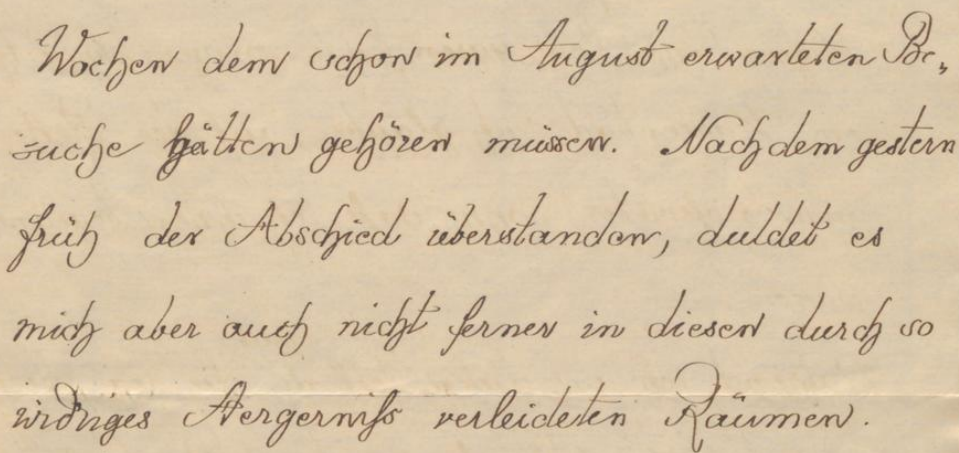 Wochen dem schon im August erwarteten Be-
suche hätten gehören müssen. Nachdem gestern
früh der Abschied überstanden, duldet es
mich aber auch nicht ferner in diesen durch so
widriges Aergerniss verleideten Räumen.